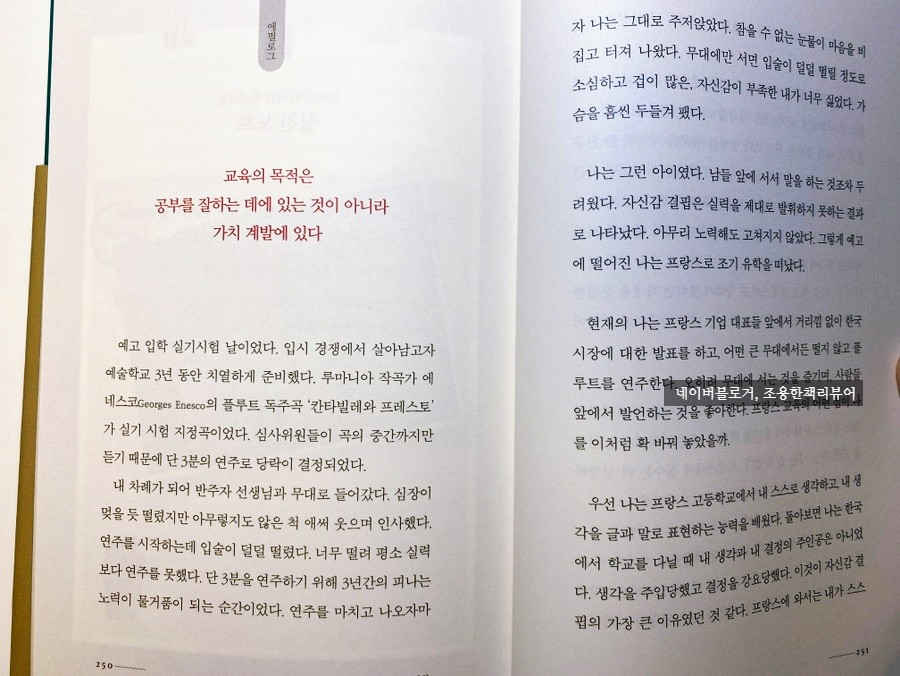 에필로그
교육의 목적은
공부를 잘하는 데에 있는 것이 아니라
가치 계발에 있다
예고 입학 실기시험 날이었다. 입시 경쟁에서 살아남고자
예술학교 3년 동안 치열하게 준비했다. 루마니아 작곡가 에
네스코Georges Enesco의 플루트 독주곡 ‘칸타빌레와 프레스토’
가 실기 시험 지정곡이었다. 심사위원들이 곡의 중간까지만
듣기 때문에 단 3분의 연주로 당락이 결정되었다.
내 차례가 되어 반주자 선생님과 무대로 들어갔다. 심장이
멎을 듯 떨렸지만 아무렇지도 않은 척 애써 웃으며 인사했다.
연주를 시작하는데 입술이 덜덜 떨렸다. 너무 떨려 평소 실력
보다 연주를 못했다. 단 3분을 연주하기 위해 3년간의 피나는
노력이 물거품이 되는 순간이었다. 연주를 마치고 나오자마
250
자 나는 그대로 주저앉았다. 참을 수 없는 눈물이 마음을 비
집고 터져 나왔다. 무대에만 서면 입술이 덜덜 떨릴 정도로
소심하고 겁이 많은, 자신감이 부족한 내가 너무 싫었다. 가
슴을 흠씬 두들겨 팼다.
나는 그런 아이였다. 남들 앞에 서서 말을 하는 것조차 두
려웠다. 자신감 결핍은 실력을 제대로 발휘하지 못하는 결과
로 나타났다. 아무리 노력해도 고쳐지지 않았다. 그렇게 예고
에 떨어진 나는 프랑스로 조기 유학을 떠났다.
현재의 나는 프랑스 기업 대표들 앞에서 거리낌 없이 한국
시장에 대한 발표를 하고, 어떤 큰 무대에서든 떨지 않고 플
루트를 연주한다. 오히려 무대에 서는 것을 즐기며, 사람들
네이버블로거, 조용한책리뷰어
앞에서 발언하는 것을 좋아한다. 프랑스 교육의 어떤 힘이 나
를 이처럼 확 바꿔 놓았을까.
우선 나는 프랑스 고등학교에서 내 스스로 생각하고, 내 생
각을 글과 말로 표현하는 능력을 배웠다. 돌아보면 나는 한국
에서 학교를 다닐 때 내 생각과 내 결정의 주인공은 아니었
다. 생각을 주입당했고 결정을 강요당했다. 이것이 자신감 결
핍의 가장 큰 이유였던 것 같다. 프랑스에 와서는 내가 스스
251